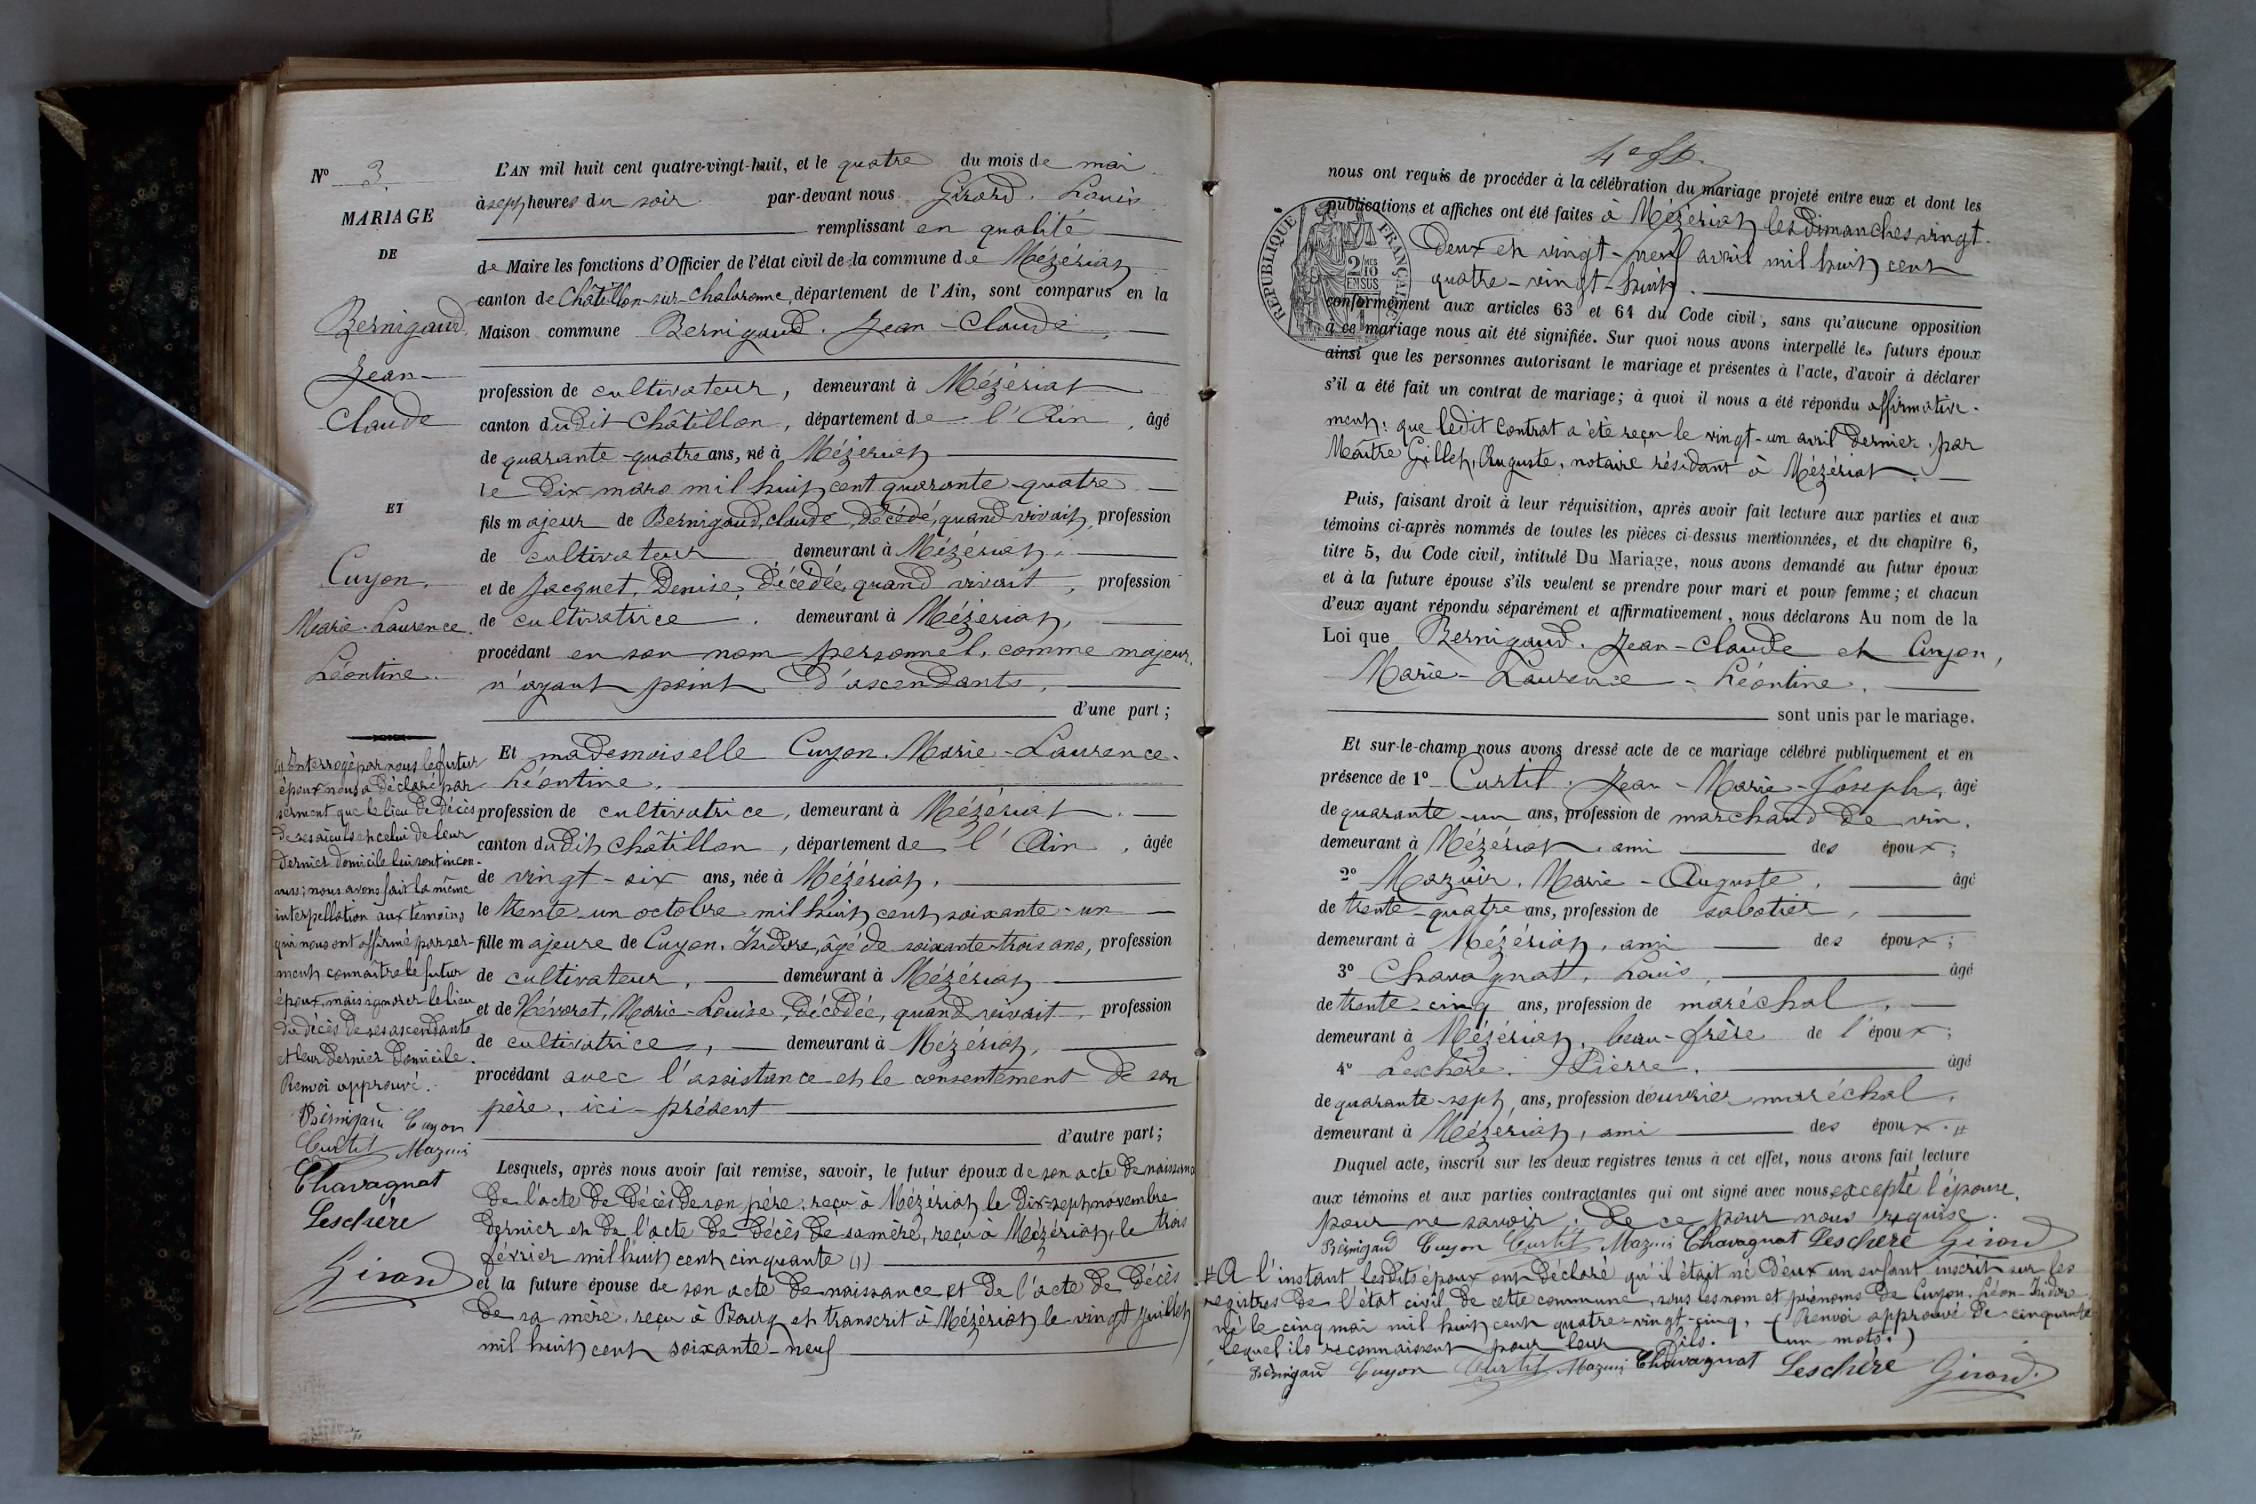 N° 3.
MARIAGE
DE
Bernigaud,
Jean-
Claude
ET
Cuyon,
Marie-Laurence.
Léontine.
(1) Interrogé par nous le futur
époux nous a déclaré par
serment que le lieu de décès
de ses aïeuls et celui de leur
dernier domicile lui sont incon-
nus; nous avons fait la même
interpellation aux témoins
qui nous ont affirmé par ser-
ment connaître le futur
époux, mais ignorer le lieu
du décès de ses ascendants
et leur dernier domicile.
Renvoi approuvé.
Bernigaud Cuyon
Curtil Mazuir
Chavagnat
Leschère
Girard
L'AN mil huit cent quatre-vingt-huit, et le quatre du mois de mai
à sept heures du soir par-devant nous Girard, Louis
remplissant en qualité
de Maire les fonctions d'Officier de l'état civil de la commune de Mézériat
canton de Châtillon-sur-Chalaronne, département de l'Ain, sont comparus en la
Maison commune Bernigaud, Jean-Claude,
profession de cultivateur, demeurant à Mézériat
canton dudit Châtillon, département de l'Ain, âgé
de quarante-quatre ans, né à Mézériat
le dix mars mil huit cent quarante-quatre
fils majeur de Bernigaud, Claude, décédé, quand vivait, profession
de cultivateur demeurant à Mézériat,
et de Jacquet, Denise, décédée, quand vivait, profession
de cultivatrice, demeurant à Mézériat,
procédant en son nom personnel, comme majeur,
n'ayant point d'ascendants,
d'une part;
Et mademoiselle Cuyon, Marie-Laurence-
Léontine,
profession de cultivatrice, demeurant à Mézériat,
canton dudit Châtillon, département de l'Ain, âgée
de vingt-six ans, née à Mézériat,
le trente-un octobre mil huit cent soixante-un
fille majeure de Cuyon, Isidore, âgé de soixante-trois ans, profession
de cultivateur, demeurant à Mézériat
et de Névoret, Marie-Louise, décédée, quand vivait, profession
de cultivatrice, demeurant à Mézériat,
procédant avec l'assistance et le consentement de son
père, ici-présent
d'autre part;
Lesquels, après nous avoir fait remise, savoir, le futur époux de son acte de naissance
de l'acte de décès de son père, reçu à Mézériat le dix-sept novembre
dernier et de l'acte de décès de sa mère, reçu à Mézériat, le trois
février mil huit cent cinquante (1)
et la future épouse de son acte de naissance et de l'acte de décès
de sa mère, reçu à Bourg et transcrit à Mézériat le vingt juillet
mil huit cent soixante-neuf
nous ont requis de procéder à la célébration du mariage projeté entre eux et dont les
publications et affiches ont été faites à Mézériat les dimanches vingt-
deux et vingt-neuf avril mil huit cent
quatre-vingt-huit.
REPUBLIQUE FRANÇAISE
conformément aux articles 63 et 64 du Code civil, sans qu'aucune opposition
à ce mariage nous ait été signifiée. Sur quoi nous avons interpellé les futurs époux
ainsi que les personnes autorisant le mariage et présentes à l'acte, d'avoir à déclarer
s'il a été fait un contrat de mariage; à quoi il nous a été répondu affirmative-
ment: que ledit contrat a été reçu le vingt-un avril dernier, par
Maître Gillet, Auguste, notaire résidant à Mézériat.
Puis, faisant droit à leur réquisition, après avoir fait lecture aux parties et aux
témoins ci-après nommés de toutes les pièces ci-dessus mentionnées, et du chapitre 6,
titre 5, du Code civil, intitulé Du Mariage, nous avons demandé au futur époux
et à la future épouse s'ils veulent se prendre pour mari et pour femme; et chacun
d'eux ayant répondu séparément et affirmativement, nous déclarons Au nom de la
Loi que Bernigaud, Jean-Claude et Cuyon,
Marie-Laurence-Léontine,
sont unis par le mariage.
Et sur-le-champ nous avons dressé acte de ce mariage célébré publiquement et en
présence de 1° Curtil, Jean-Marie-Joseph, âgé
de quarante-un ans, profession de marchand de vin,
demeurant à Mézériat, ami des époux;
2° Mazuir, Marie-Auguste, âgé
de trente-quatre ans, profession de sabotier,
demeurant à Mézériat, ami des époux;
3° Chavagnat, Louis, âgé
de trente-cinq ans, profession de maréchal,
demeurant à Mézériat, beau-frère de l'époux;
4° Leschère, Pierre, âgé
de quarante-sept ans, profession d'ouvrier maréchal,
demeurant à Mézériat, ami des époux. #
Duquel acte, inscrit sur les deux registres tenus à cet effet, nous avons fait lecture
aux témoins et aux parties contractantes qui ont signé avec nous, excepté l'épouse,
pour ne savoir, de ce par nous requise.
Bernigaud Cuyon Curtil Mazuir Chavagnat Leschère Girard
# A l'instant lesdits époux ont déclaré qu'il était né d'eux un enfant inscrit sur les
registres de l'état civil de cette commune, sous les nom et prénoms de Cuyon, Léon-Isidore
né le cinq mai mil huit cent quatre-vingt-cinq, (Renvoi approuvé de cinquante
lequel ils reconnaissent pour leur fils. un mots.)
Bernigaud Cuyon Curtil Mazuir Chavagnat Leschère Girard.